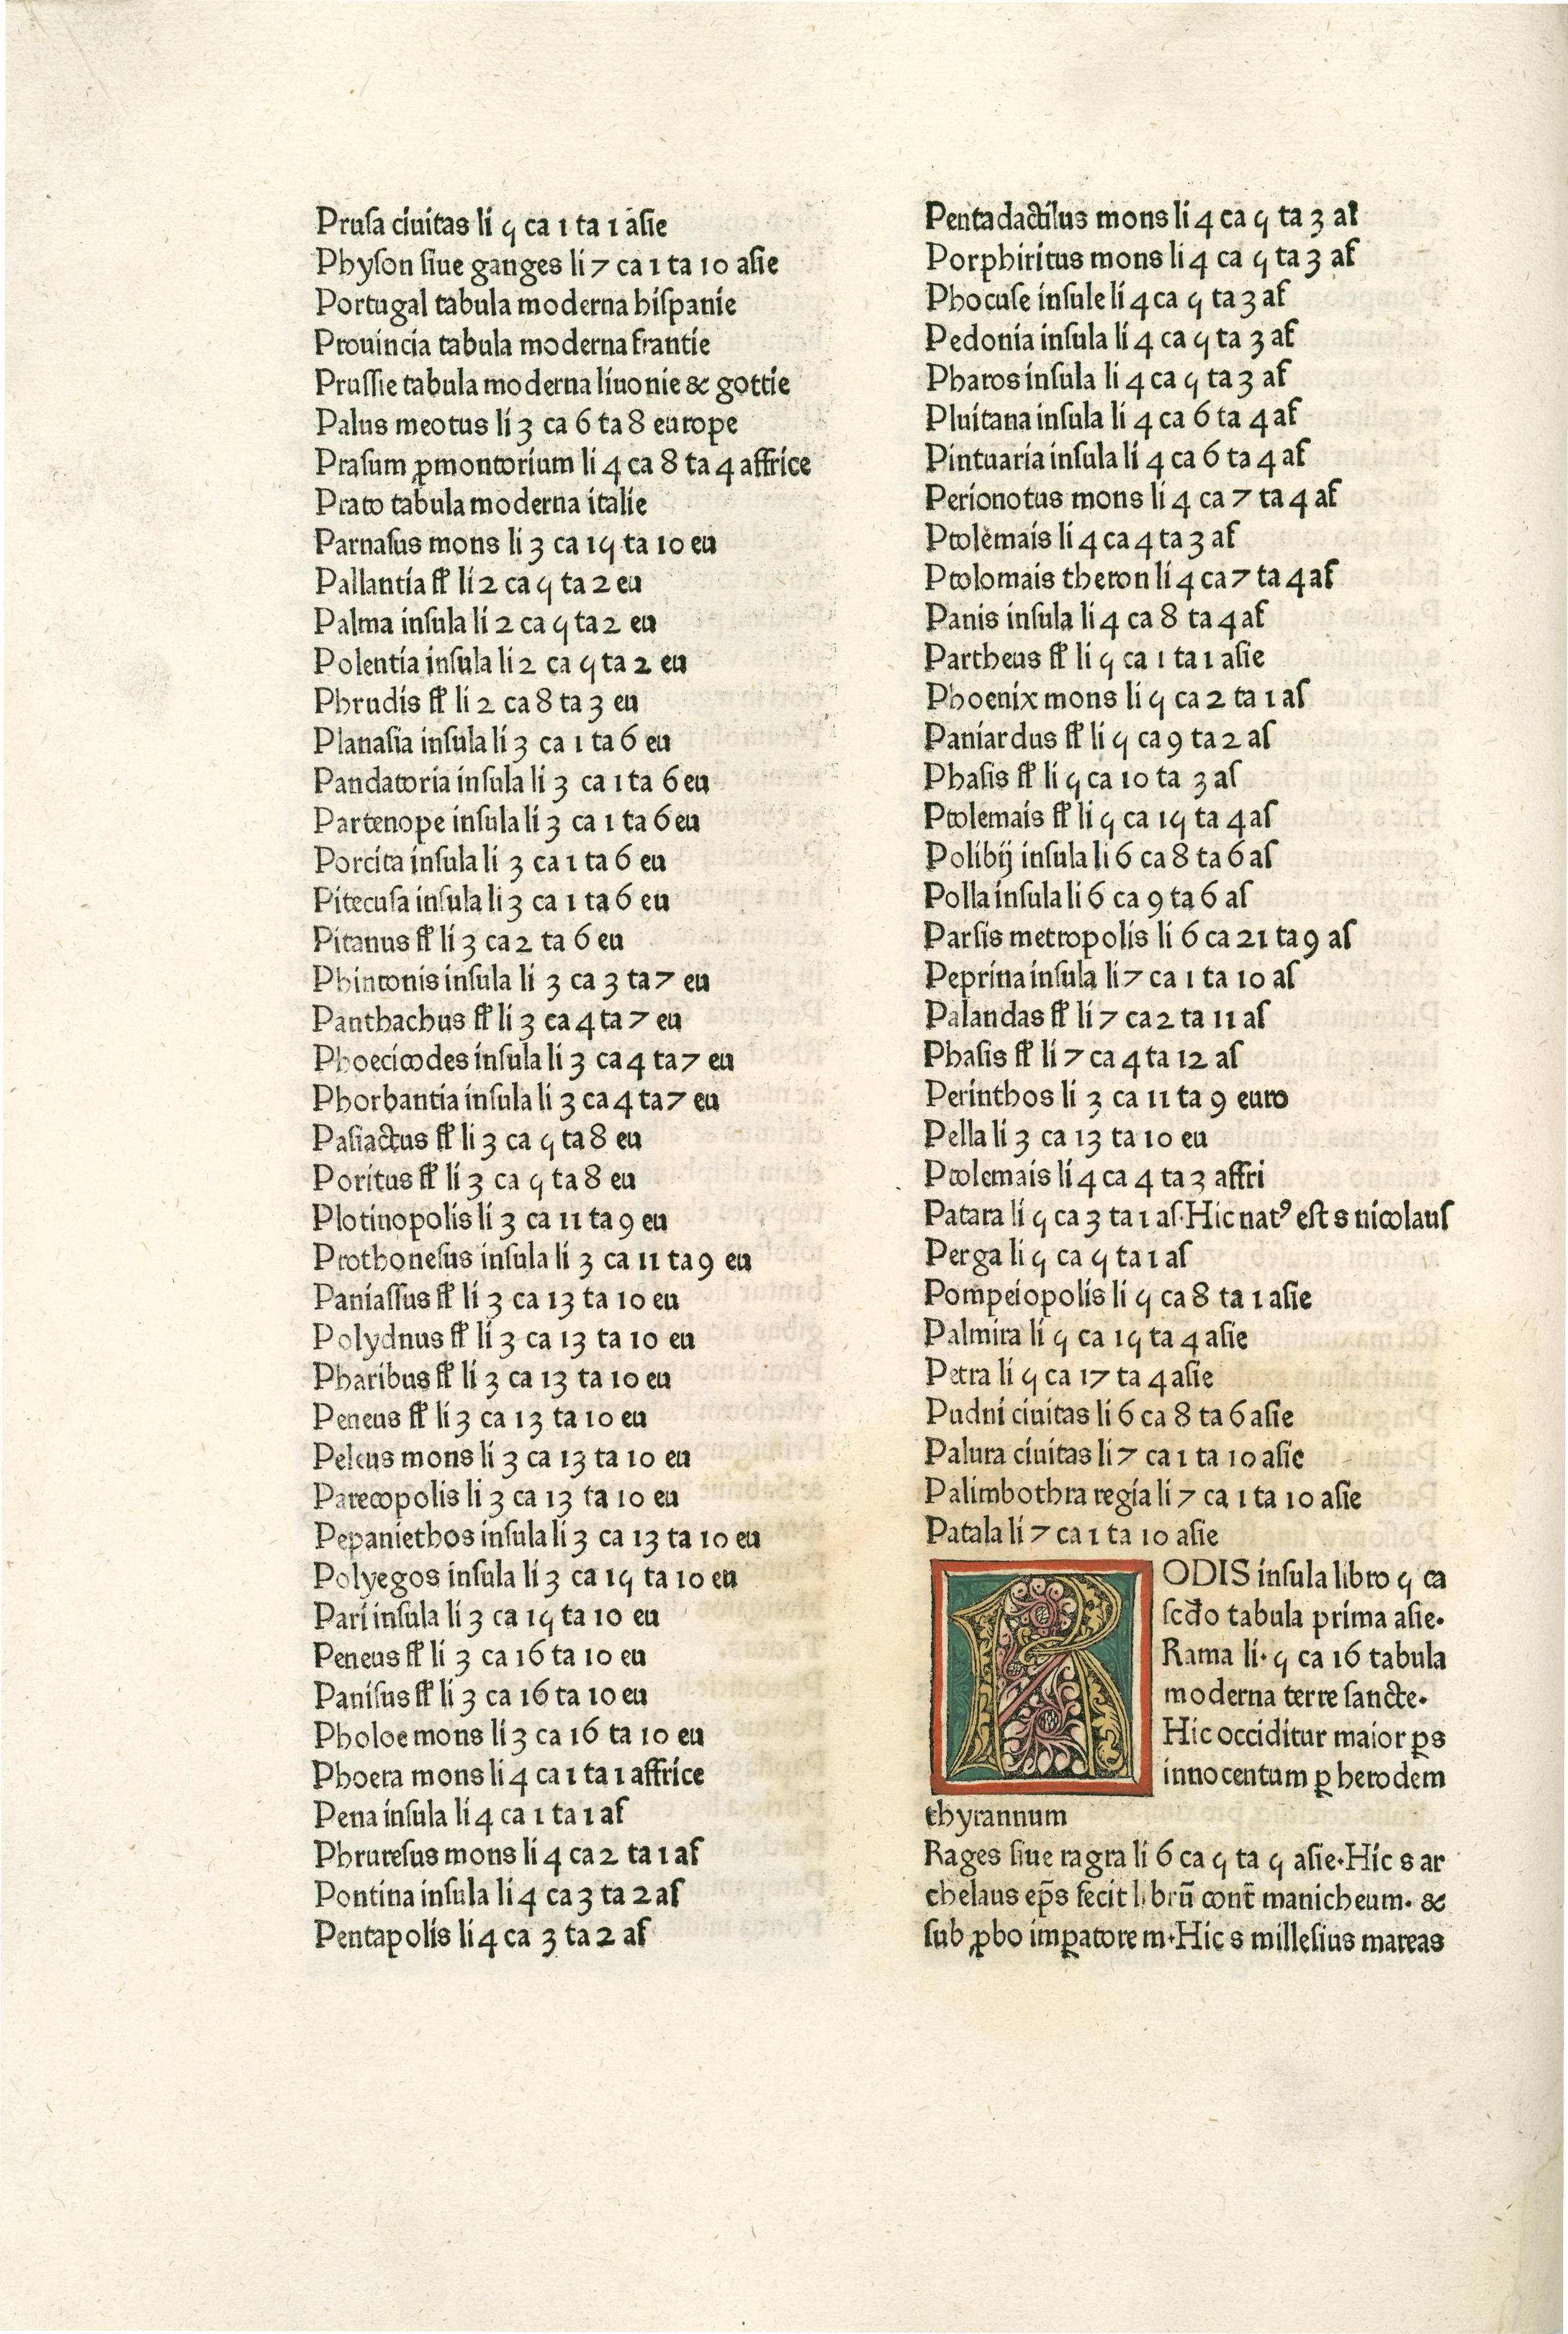 Pruſa ciuitas li 5 ca 1 ta 1 aſie
Phyſon ſiue ganges li 7 ca 1 ta 10 aſie
Portugal tabula moderna hiſpanie
Prouincia tabula moderna frantie
Pruſſie tabula moderna liuonie & gottie
Palus meotus li 3 ca 6 ta 8 europe
Praſum ꝓmontorium li 4 ca 8 ta 4 affrice
Prato tabula moderna italie
Parnaſus mons li 3 ca 15 ta 10 eu
Pallantia fl li 2 ca 5 ta 2 eu
Palma inſula li 2 ca 5 ta 2 eu
Polentia inſula li 2 ca 5 ta 2 eu
Phrudis fl li 2 ca 8 ta 3 eu
Planaſia inſula li 3 ca 1 ta 6 eu
Pandatoria inſula li 3 ca 1 ta 6 eu
Partenope inſula li 3 ca 1 ta 6 eu
Porcita inſula li 3 ca 1 ta 6 eu
Pitecuſa inſula li 3 ca 1 ta 6 eu
Pitanus fl li 3 ca 2 ta 6 eu
Phintonis inſula li 3 ca 3 ta 7 eu
Panthachus fl li 3 ca 4 ta 7 eu
Phoecicodes inſula li 3 ca 4 ta 7 eu
Phorbantia inſula li 3 ca 4 ta 7 eu
Paſiactus fl li 3 ca 5 ta 8 eu
Poritus fl li 3 ca 5 ta 8 eu
Plotinopolis li 3 ca 11 ta 9 eu
Prothoneſus inſula li 3 ca 11 ta 9 eu
Paniaſſus fl li 3 ca 13 ta 10 eu
Polydnus fl li 3 ca 13 ta 10 eu
Pharibus fl li 3 ca 13 ta 10 eu
Peneus fl li 3 ca 13 ta 10 eu
Peleus mons li 3 ca 13 ta 10 eu
Parecopolis li 3 ca 13 ta 10 eu
Pepaniethos inſula li 3 ca 13 ta 10 eu
Polyegos inſula li 3 ca 15 ta 10 eu
Pari inſula li 3 ca 15 ta 10 eu
Peneus fl li 3 ca 16 ta 10 eu
Paniſus fl li 3 ca 16 ta 10 eu
Pholoe mons li 3 ca 16 ta 10 eu
Phoera mons li 4 ca 1 ta 1 affrice
Pena inſula li 4 ca 1 ta 1 af
Phrureſus mons li 4 ca 2 ta 1 af
Pontina inſula li 4 ca 3 ta 2 aſ
Pentapolis li 4 ca 3 ta 2 af
Pentadactilus mons li 4 ca 5 ta 3 af
Porphiritus mons li 4 ca 5 ta 3 af
Phocuſe inſule li 4 ca 5 ta 3 af
Pedonia inſula li 4 ca 5 ta 3 af
Pharos inſula li 4 ca 5 ta 3 af
Pluitana inſula li 4 ca 6 ta 4 af
Pintuaria inſula li 4 ca 6 ta 4 af
Perionotus mons li 4 ca 7 ta 4 af
Ptolemais li 4 ca 4 ta 3 af
Ptolomais theron li 4 ca 7 ta 4 af
Panis inſula li 4 ca 8 ta 4 af
Partheus fl li 5 ca 1 ta 1 aſie
Phoenix mons li 5 ca 2 ta 1 aſ
Paniardus fl li 5 ca 9 ta 2 aſ
Phaſis fl li 5 ca 10 ta 3 aſ
Ptolemais fl li 5 ca 15 ta 4 aſ
Polibij inſula li 6 ca 8 ta 6 aſ
Polla inſula li 6 ca 9 ta 6 aſ
Parſis metropolis li 6 ca 21 ta 9 aſ
Peprina inſula li 7 ca 1 ta 10 aſ
Palandas fl li 7 ca 2 ta 11 aſ
Phaſis fl li 7 ca 4 ta 12 aſ
Perinthos li 3 ca 11 ta 9 euro
Pella li 3 ca 13 ta 10 eu
Ptolemais li 4 ca 4 ta 3 affri
Patara li 5 ca 3 ta 1 aſ. Hic natꝰ eſt s nicolauſ
Perga li 5 ca 5 ta 1 aſ
Pompeiopolis li 5 ca 8 ta 1 aſie
Palmira li 5 ca 15 ta 4 aſie
Petra li 5 ca 17 ta 4 aſie
Pudni ciuitas li 6 ca 8 ta 6 aſie
Palura ciuitas li 7 ca 1 ta 10 aſie
Palimbothra regia li 7 ca 1 ta 10 aſie
Patala li 7 ca 1 ta 10 aſie
RODIS inſula libro 5 ca
ſcdo tabula prima aſie.
Rama li. 5 ca 16 tabula
moderna terre ſancte.
Hic occiditur maior ꝑs
innocentum ꝑ herodem
thyrannum
Rages ſiue ragra li 6 ca 5 ta 5 aſie. Hic s ar
chelaus ep̄s fecit librū cont̄ manicheum. &
ſub ꝓbo imꝑatore m. Hic s milleſius mareas